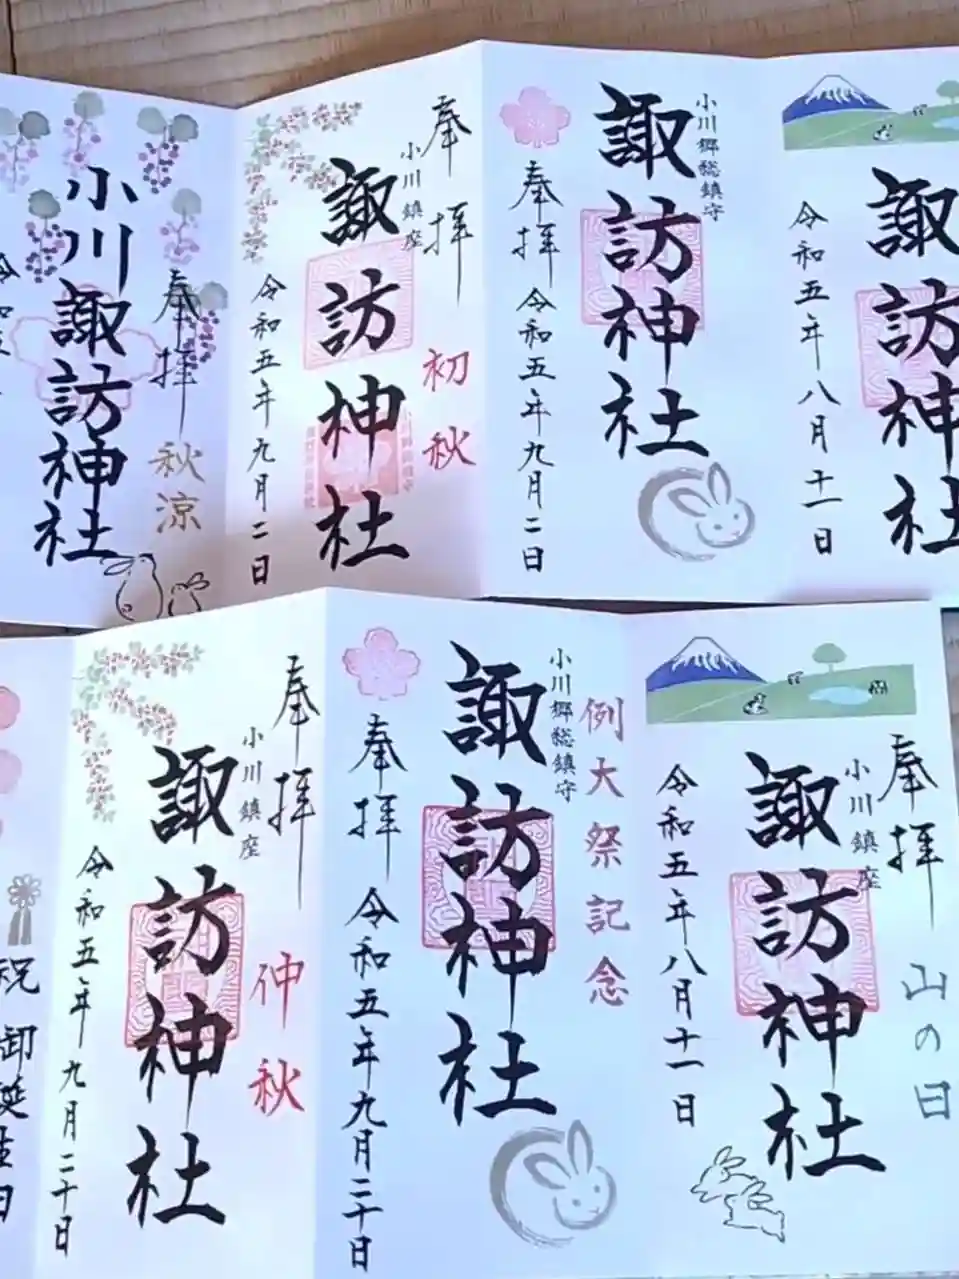 奉拝
小川諏訪神社
秋涼
奉拝
小川鎮座
諏訪神社
初秋
令和五年九月二日
小川郷総鎮守
諏訪神社
奉拝
令和五年九月二日
諏訪神社
令和五年八月十一日
祝
奉拝
小川鎮座
諏訪神社
仲秋
令和五年九月二十日
例大祭記念
小川郷総鎮守
諏訪神社
奉拝
令和五年九月二十日
奉拝
小川鎮座
諏訪神社
山の日
令和五年八月十一日